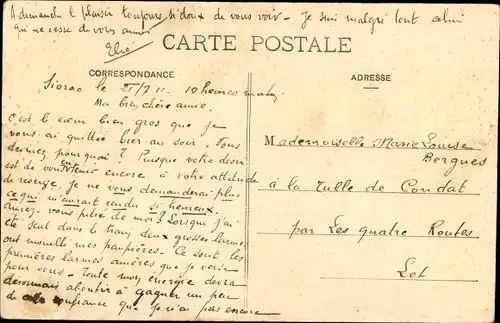 A dimanche le plaisir toujours si doux de vous voir - Je suis malgré tout celui
qui ne cesse de vous aimer
CARTE POSTALE
CORRESPONDANCE
ADRESSE
Siorac le 10 heures matin
Ma bien chère amie.
C'est le cœur bien gros que je
vous ai quittée hier au soir. Vous
devinez pourquoi? Puisque votre désir
est de vous en tenir encore à votre attitude
de réserve, je ne vous demanderai plus
ce qui m'aurait rendu si heureux.
Aurez-vous pitié de moi? Lorsque j'ai
été seul dans le train deux grosses larmes
ont mouillé mes paupières. Ce sont les
premières larmes amères que je verse
pour vous - Toute mon énergie devra
désormais aboutir à gagner un peu
de confiance que je n'ai pas encore
Mademoiselle Marie Louise
Bergues
à la Tulle de Condat
par Les quatre Routes
Lot